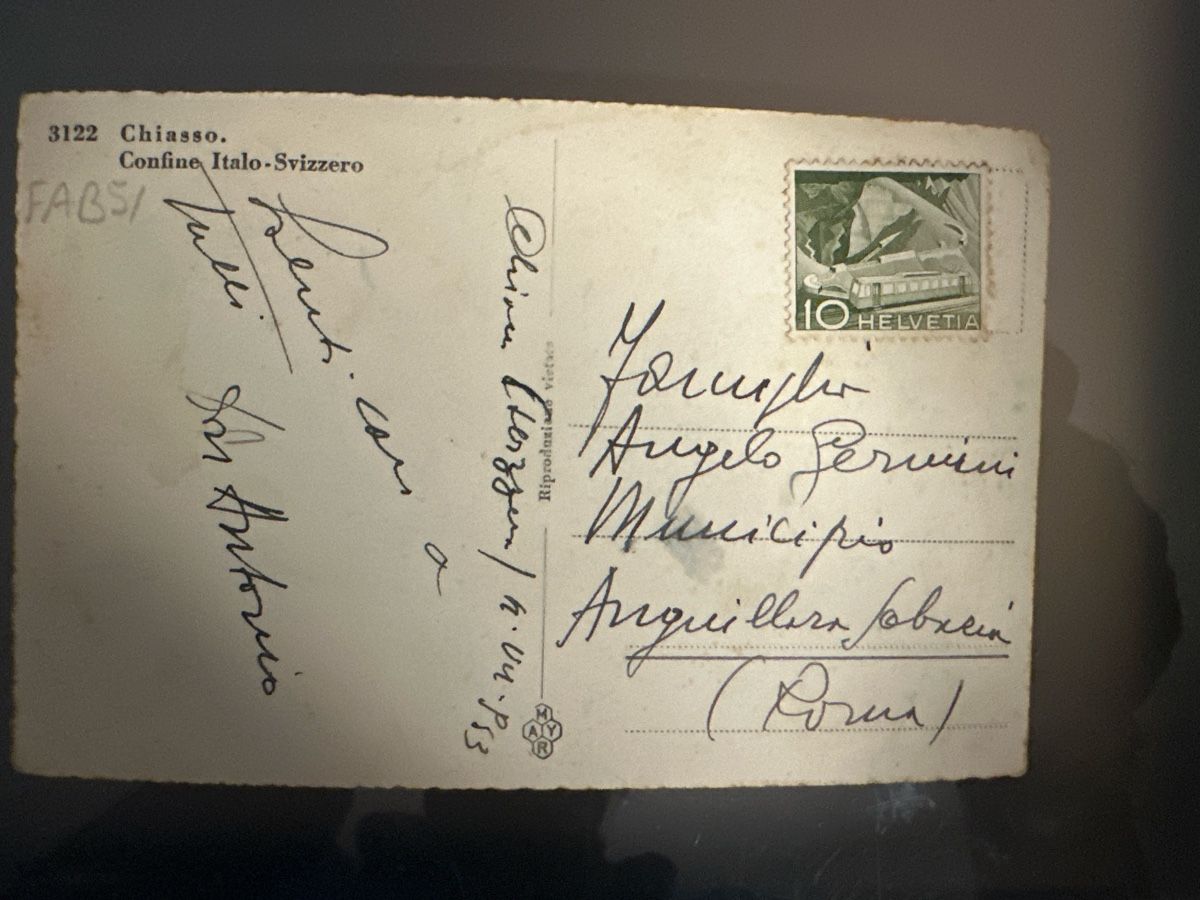 3122 Chiasso.
Confine Italo-Svizzero
FAB51
Saluti cari
a
tutti
Antonio
Riproduzione vietata
MAYR
10 HELVETIA
Famiglia
Angelo
Municipio
Anguillara Sabazia
(Roma)